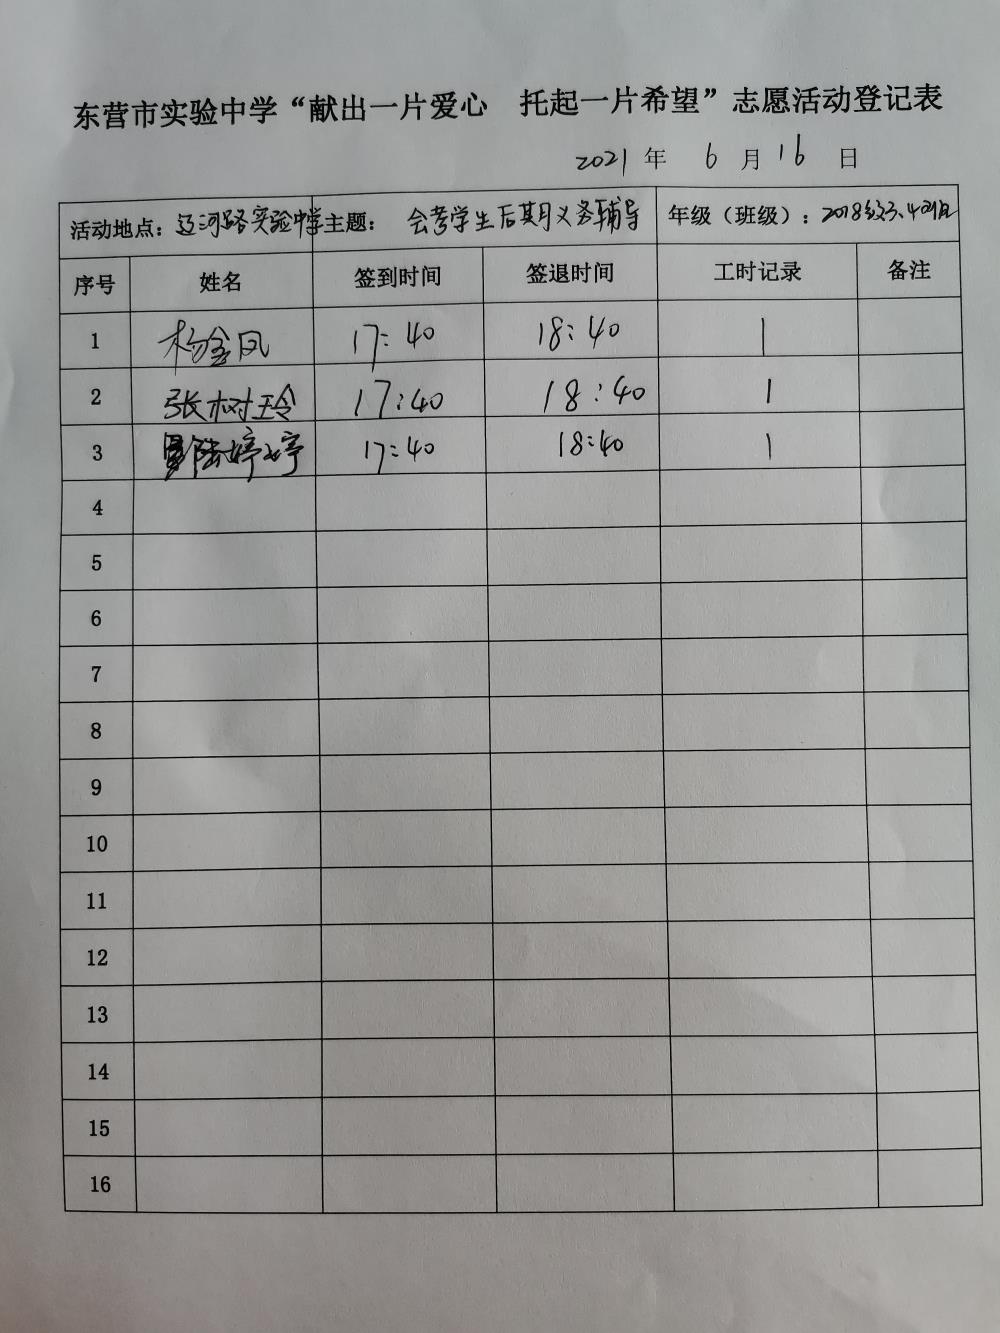 东营市实验中学“献出一片爱心 托起一片希望”志愿活动登记表
2021 年 6 月 16 日
活动地点：辽河路实验中学 主题： 会考学生后期义务辅导 年级（班级）：2018级3、4班
序号 姓名 签到时间 签退时间 工时记录 备注
1 杨金凤 17:40 18:40 1
2 张树玲 17:40 18:40 1
3 陆婷婷 17:40 18:40 1
4
5
6
7
8
9
10
11
12
13
14
15
16